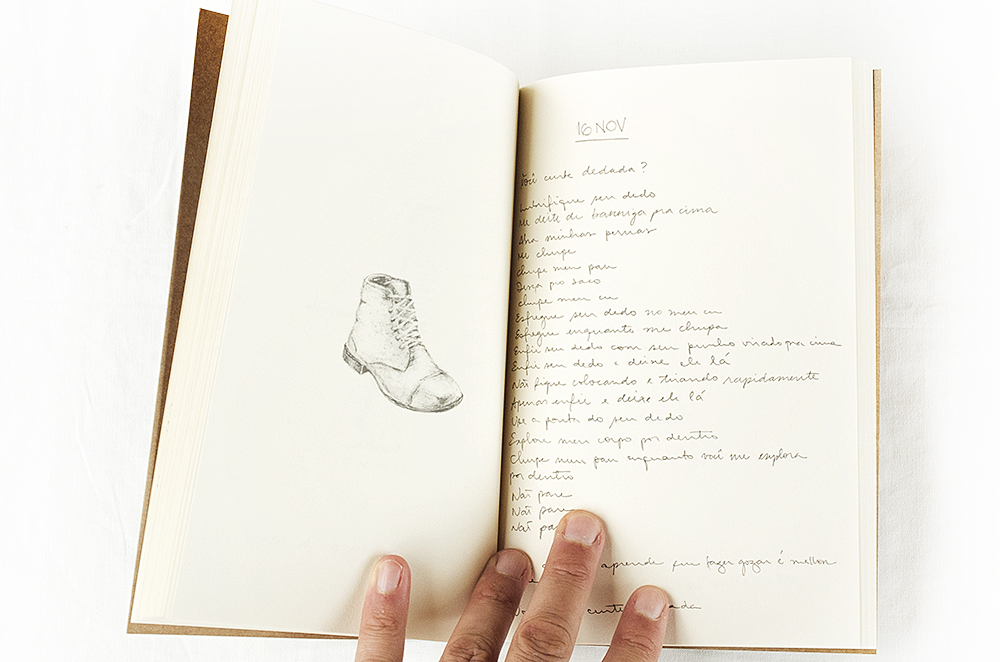 16 NOV
Você curte dedada?
Lubrifique seu dedo
Me deite de barriga pra cima
Abra minhas pernas
Me chupe
Chupe meu pau
Desça pro saco
Chupe meu cu
Esfregue seu dedo no meu cu
Esfregue enquanto me chupa
Enfie seu dedo com seu punho virado pra cima
Enfie seu dedo e deixe ele lá
Não fique colocando e tirando rapidamente
Apenas enfie e deixe ele lá
Use a ponta do seu dedo
Explore meu corpo por dentro
Chupe meu pau enquanto você me explora
por dentro
Não pare
Não pare
Não pa
aprende que fazer gozar é melhor
curte